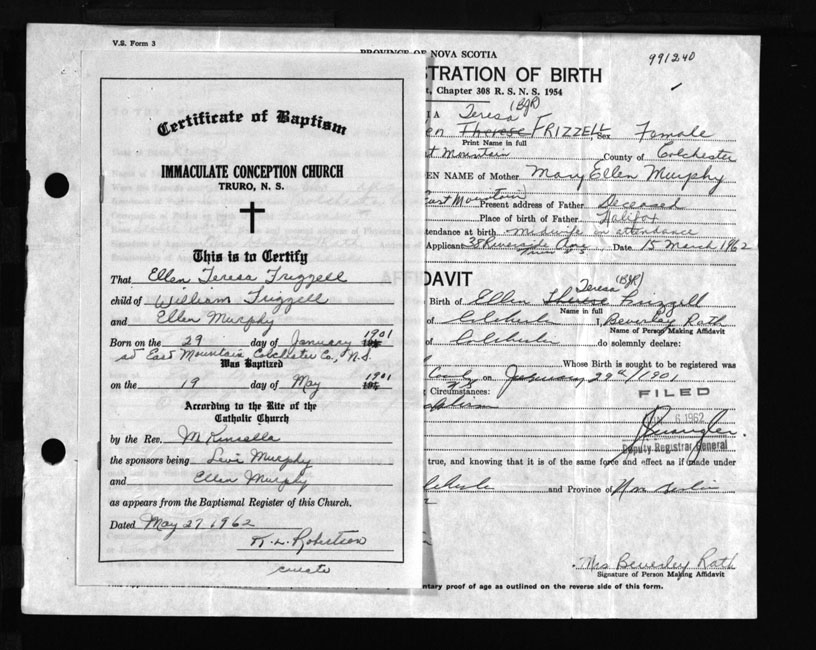 V.S. Form 3
PROVINCE OF NOVA SCOTIA
991240
STRATION OF BIRTH
t, Chapter 308 R. S. N. S. 1954
Certificate of Baptism
IMMACULATE CONCEPTION CHURCH
TRURO, N. S.
This is to Certify
That Ellen Teresa Frizzell
child of William Frizzell
and Ellen Murphy
Born on the 29 day of January 1901
at East Mountain Colchester Co., N.S.
Was Baptized
on the 19 day of May 1901
According to the Rite of the
Catholic Church
by the Rev. M Kinsella
the sponsors being Levi Murphy
and Ellen Murphy
as appears from the Baptismal Register of this Church.
Dated May 27, 1962
R. L. Robertson
curate
IA Teresa (BJR)
en Therese FRIZZELL Sex Female
Print Name in full
t Mountain County of Colchester
EN NAME of Mother Mary Ellen Murphy
East Mountain)
Present address of Father Deceased
Place of birth of Father Halifax
ttendance at birth midwife in attendance
Applicant 38 Riverside Ave Date 15 March 1962
Truro N S
DAVIT
Teresa (BJR)
Birth of Ellen Therese Frizzell
Name in full
of Colchester I, Beverley Rath
Name of Person Making Affidavit
of Colchester do solemnly declare:
Whose Birth is sought to be registered was
County on January 29th/1901
NS
g Circumstances:
FILED
6 1962
Deputy Registrar General
true, and knowing that it is of the same force and effect as if made under
lchester and Province of Nova Scotia
Mrs Beverley Rath
Signature of Person Making Affidavit
entary proof of age as outlined on the reverse side of this form.